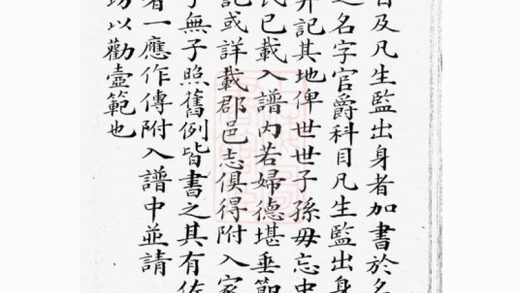 及凡生監出身者加書於名
之名字官爵科目凡生監出身
并記其地俾世世子孫毋忘
氏已載入譜內若婦德堪垂節
記或詳載郡邑志俱得附入家
子無子照舊例皆書之其有
者一應作傳附入譜中並請
坊以勸壼範也